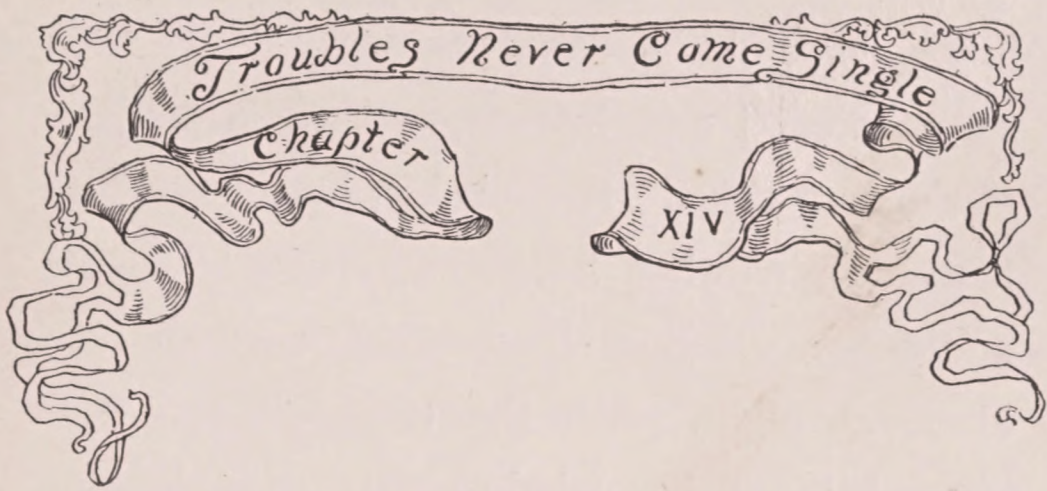 Troubles Never Come Single
Chapter
XIV